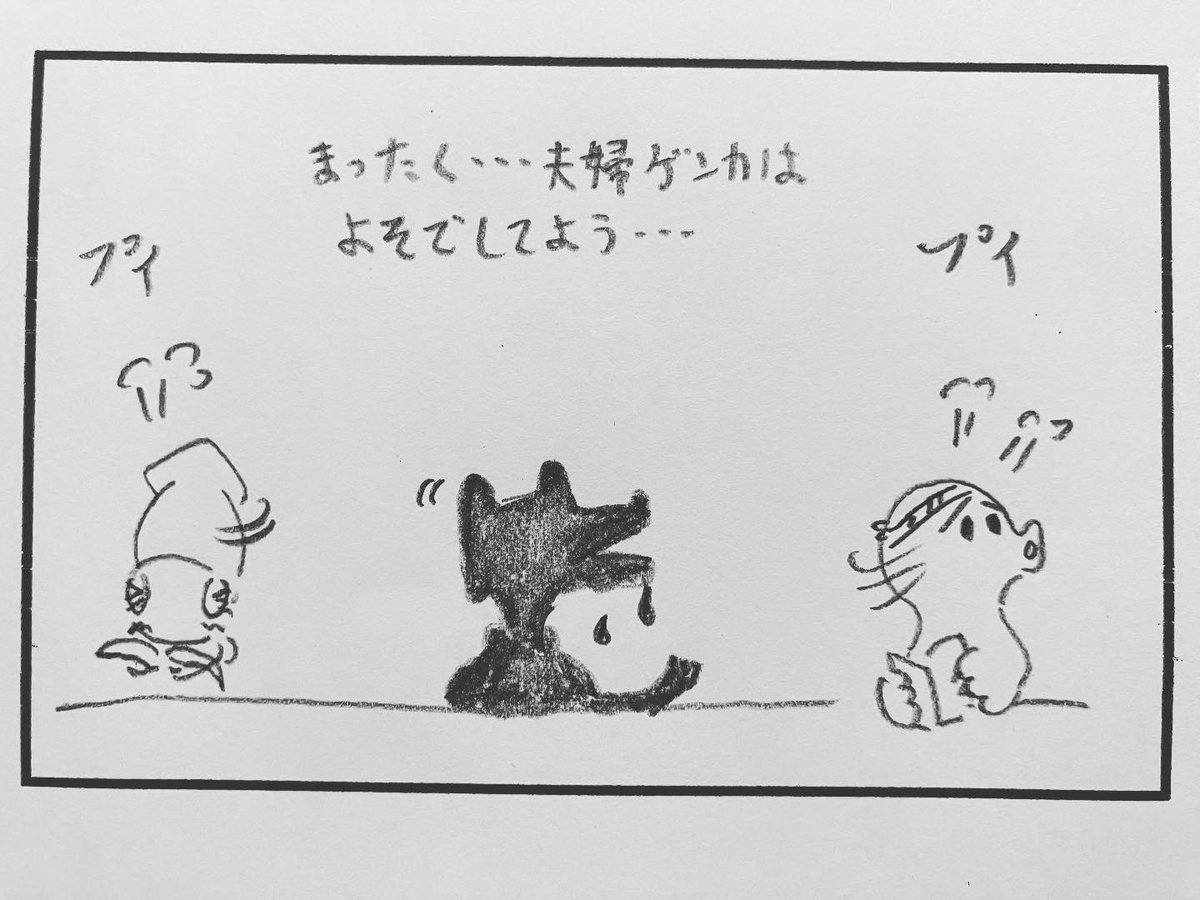 まったく・・・夫婦ゲンカは
よそでしてよう・・・
プイ
プイ